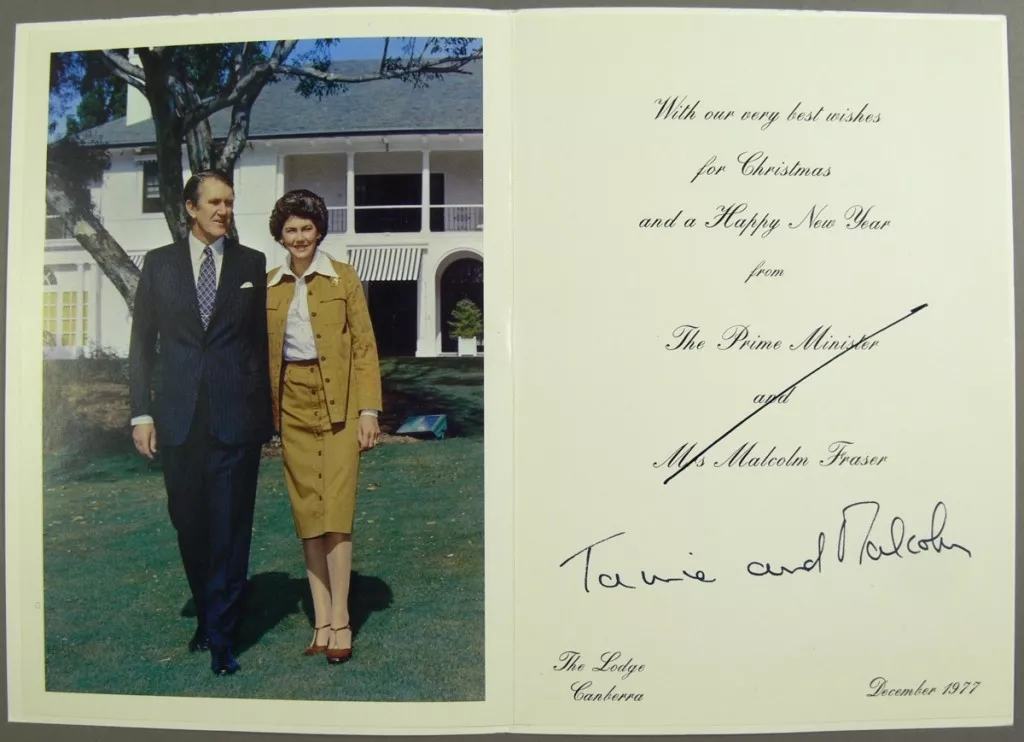 With our very best wishes
for Christmas
and a Happy New Year
from
The Prime Minister
and
Mrs Malcolm Fraser
Tamie and Malcolm
The Lodge
Canberra
December 1977